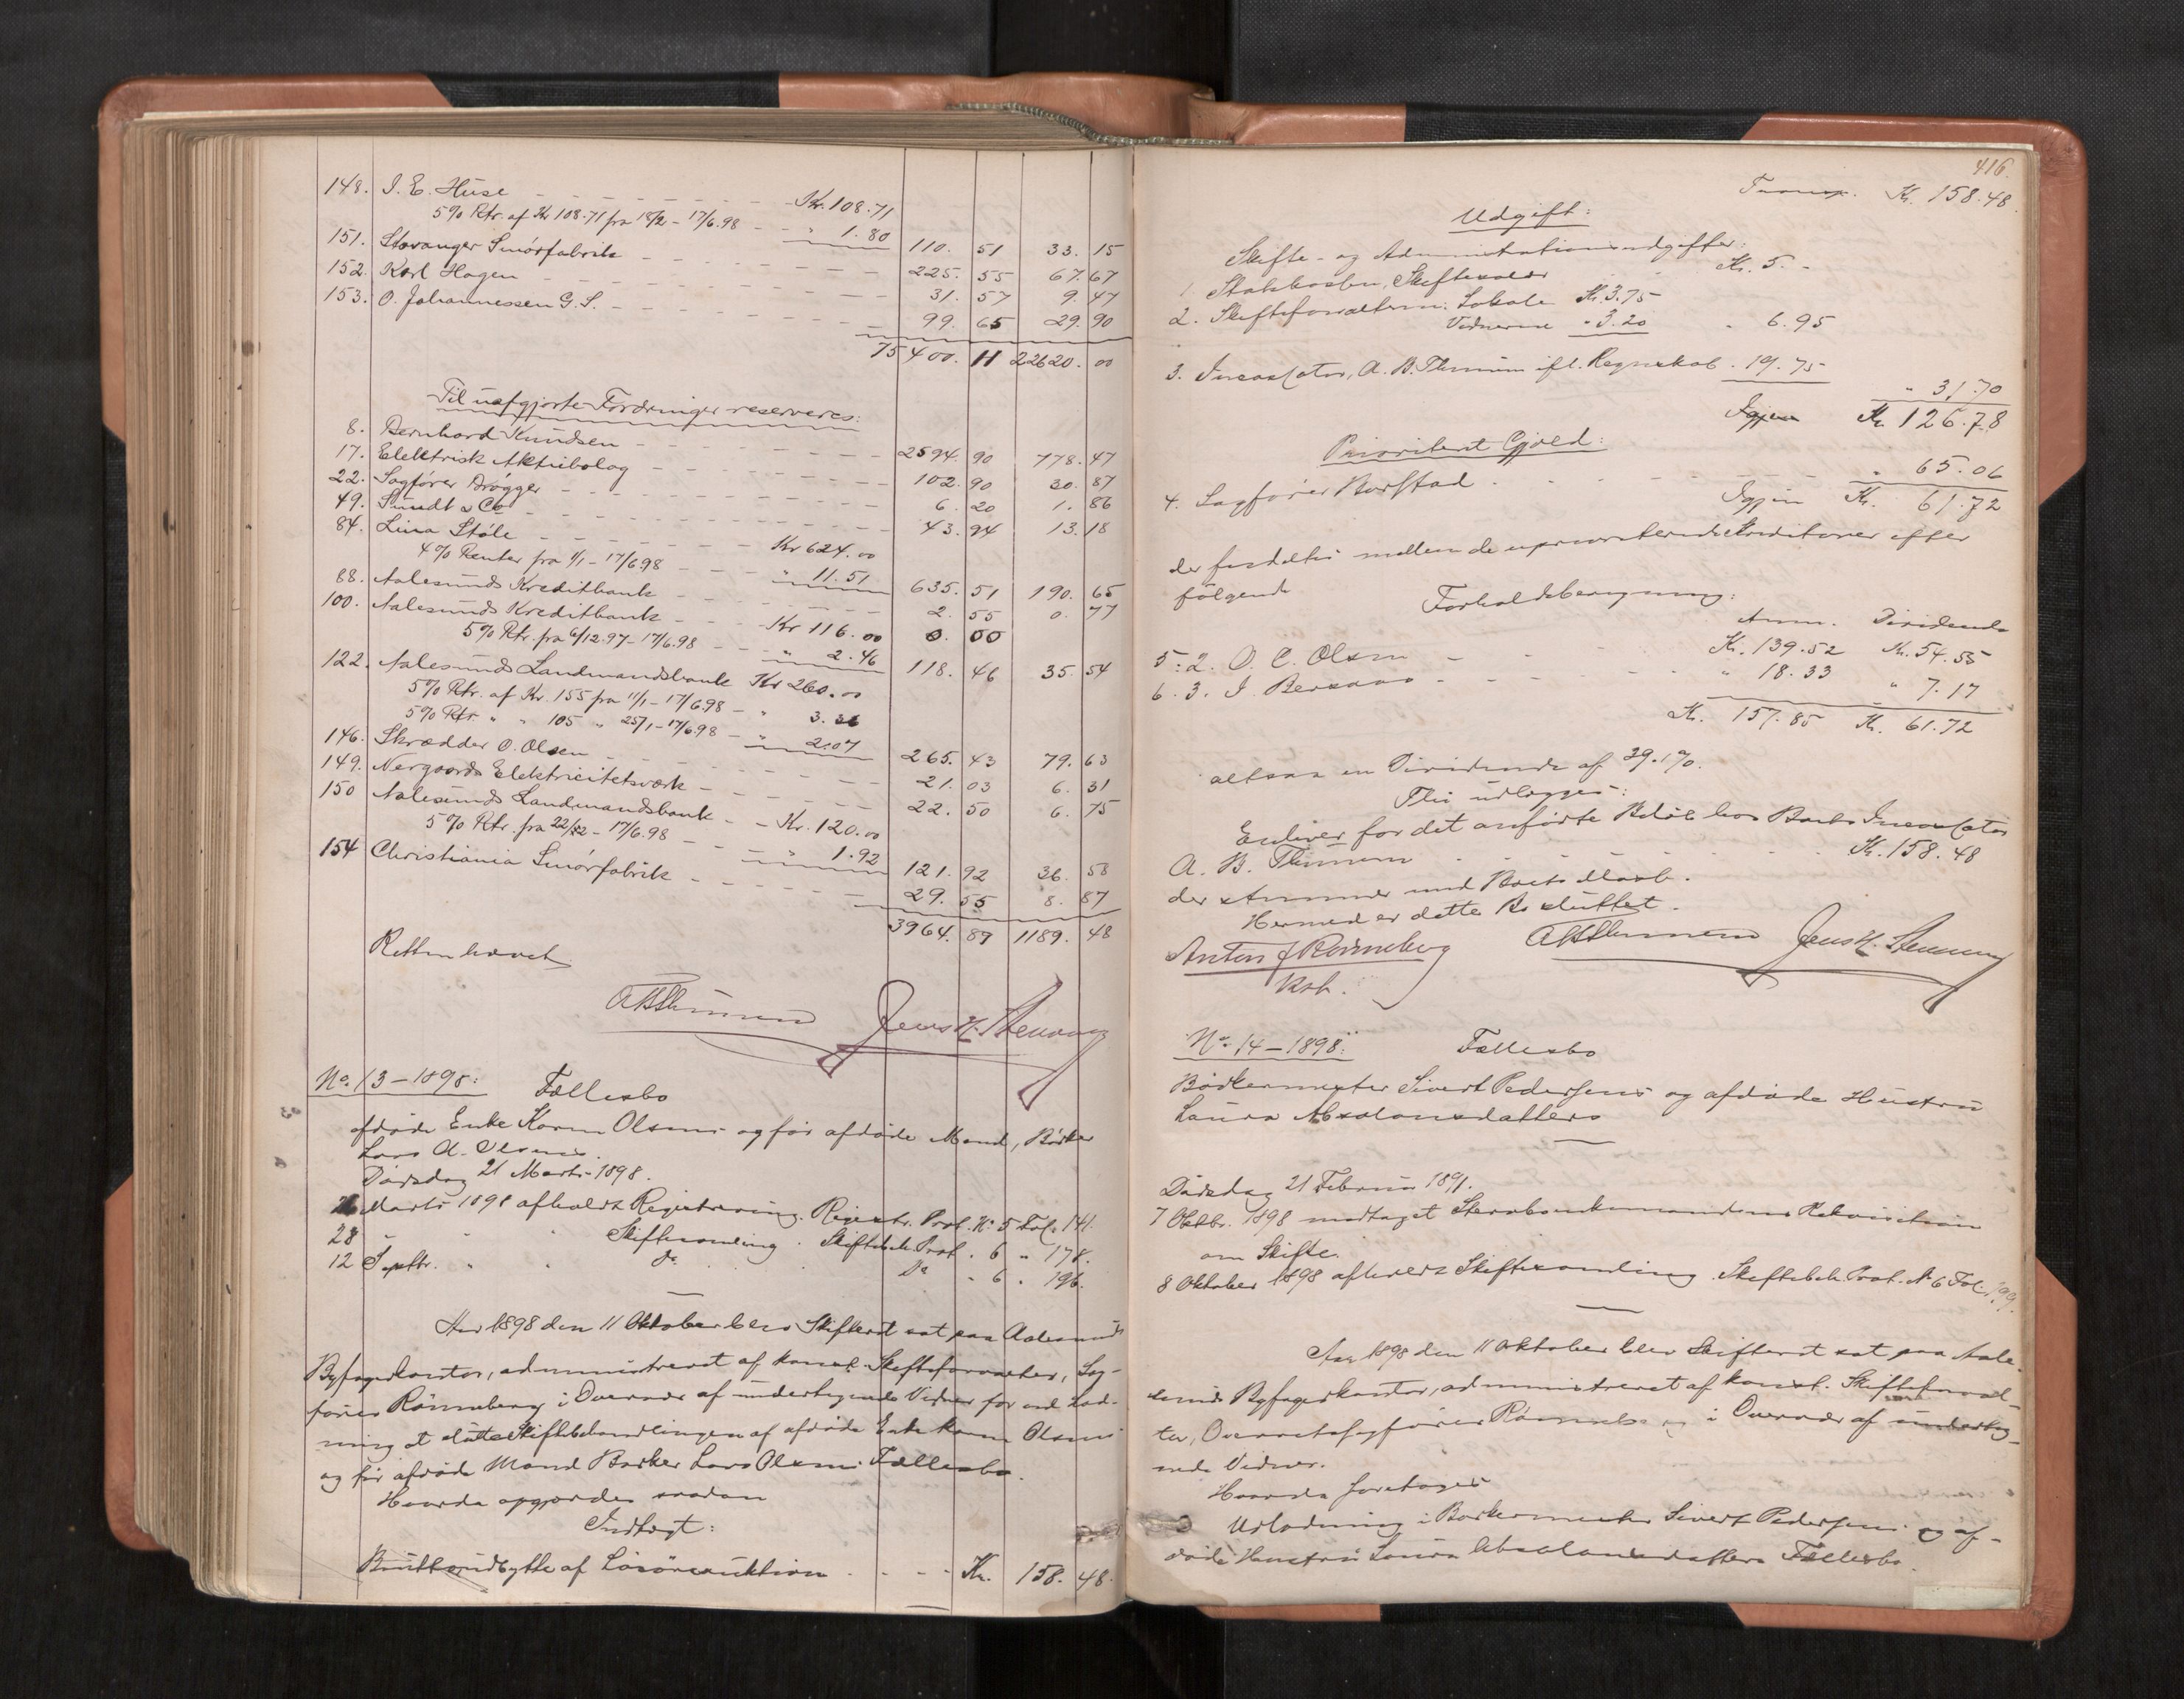 148. J. E. Huse - - - - - - Kr. 108.71
5% Rtr. af Kr 108.71 fra 18/2 - 17/6.98 - - " 1.80 110. 51 33. 15
151. Stavanger Smörfabrik - - - - - - 225. 55 67. 67
152. Karl Hagen - - - - - - 31. 57 9. 47
153. O. Johannessen G. S. - - - - - - 99. 65 29. 90
75400. 11 22620. 00
Til uafgjorte Fordringer reserveres:
8. Bernhard Knudsen - - - - - - 2594. 90 778. 47
17. Elektrisk Aktiebolag - - - - - - 102. 90 30. 87
22. Sagförer Brögger - - - - - - 6. 20 1. 86
49. Sundt & Co - - - - - - 43. 94 13. 18
84. Lina Stöle - - - - - Kr 624.00
4% Renter fra 1/1 - 17/6 98 - - - " 11.51 635. 51 190. 65
88. Aalesunds Kreditbank - - - - - - 2. 55 0. 77
100. Aalesunds Kreditbank - - - Kr 116.00 0. 00
5% Rtr. fra 6/12.97 - 17/6.98 - - " 2.46 118. 46 35. 54
122. Aalesunds Landmandsbank Kr 260.00
5% Rtr. af Kr. 155 fra 11/1 - 17/6.98 - " 3.36
5% Rtr " " 105 " 25/1 - 17/6.98 - " 2.07 265. 43 79. 63
146. Skrædder O. Olsen - - - - - - 21. 03 6. 31
149. Nergaards Elektricitetsværk - - - - - 22. 50 6. 75
150 Aalesunds Landmandsbank - - Kr. 120.00
5% Rtr. fra 22/2 - 17/6.98 - - - " 1.92 121. 92 36. 58
154 Christiania Smörfabrik - - - - - - 29. 55 8. 87
3964. 89 1189. 48
Retten hævet
A B Thunem Jens H. Stenvaag
No. 13 - 1898: Fællesbo
afdöde Enke Karen Olsens og før afdöde Mand, Bödker
Lars A. Olsens.
Dödsdag 21 Marts 1898.
26 Marts 1898 afholdt Registrering. Registr. Prot. No 5 Fol. 141.
28 " " Skiftesamling. Skiftebeh. Prot. " 6 " 178.
12 Septbr. " " do. Do " 6 " 196.
Aar 1898 den 11 Oktober blev Skifteret sat paa Aalesunds
Byfogedkontor, administreret af konst. Skifteforvalter, Sag-
förer Rönneberg i Overvær af undertegnede Vidner for ved Lod-
ning at slutte Skiftebehandlingen af afdöde Enke Karen Olsens
og før afdöde Mand Bödker Lars Olsens Fællesbo.
Hvorda opgjordes saadan
Indtægt:
Bruttoudbytte af Lösöreauktion - - - Kr. 158. 48.
416.
Transp. Kr. 158.48.
Udgift:
Skifte- og Administrationsudgifter:
1. Statskassen, Skiftesalær Kr. 5. -
2. Skifteforvalteren: Lokale Kr. 3.75
Vidnerne " 3.20 " 6.95
3. Incassator, A. B. Thunem ifl. Regnskab " 19.75 " 31.70
Igjen Kr. 126.78
Prioriteret Gjæld:
4. Sagförer Borstad - - - - " 65.06
Igjen Kr. 61.72
der fordeles mellem de uprioriterede Kreditorer efter
fölgende Forholdsberegning:
Anm. Dividende
5. 2. O. C. Olsen - - - Kr. 139.52 Kr. 54.55
6. 3. J. - - - " 18.33 " 7.17
Kr. 157.85 Kr. 61.72
altsaa en Dividende af 39.1 %.
Thi udlægges:
Enhver for det anförte Belöb hos Boets Incassator
A. B. Thunem - - - - - - Kr. 158.48
der stemmer med Boets Masse.
Hermed er dette Bo sluttet.
Anton J Rønneberg A B Thunem Jens H. Stenvaag
Kst.
No. 14 - 1898: Fællesbo
Bödkermester Sivert Pedersens og afdöde Hustru
Laura Absalonsdatters
Dödsdag 21 Februar 1891.
7 Oktbr. 1898 modtaget Stervboenkemandens Rekvisition
om Skifte.
8 Oktober 1898 afholdt Skiftesamling. Skiftebeh. Prot. No 6 Fol. 199.
Aar 1898 den 11 Oktober blev Skifteret sat paa Aale-
sunds Byfogedkontor, administreret af konst. Skifteforval-
ter, Overretssagförer Rönneberg i Overvær af underteg-
nede Vidner.
Hvorda foretoges
Udlodning i Bödkermester Sivert Pedersens og af-
döde Hustru Laura Absalonsdatters Fællesbo.